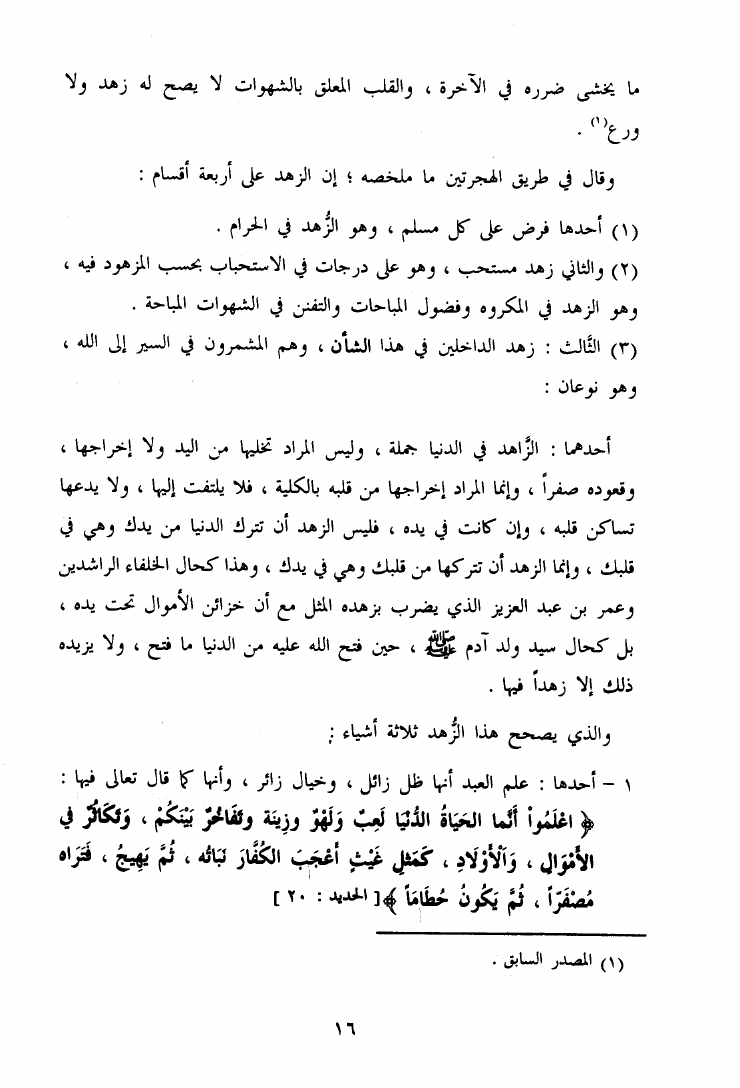 ما يخشى ضرره في الآخرة ، والقلب المعلق بالشهوات لا يصح له زهد ولا
ورع(١) .
وقال في طريق الهجرتين ما ملخصه ؛ إن الزهد على أربعة أقسام :
(١) أحدها فرض على كل مسلم ، وهو الزُّهد في الحرام .
(٢) والثاني زهد مستحب ، وهو على درجات في الاستحباب بحسب المزهود فيه ،
وهو الزهد في المكروه وفضول المباحات والتفنن في الشهوات المباحة .
(٣) الثَّالث : زهد الداخلين في هذا الشأن ، وهم المشمرون في السير إلى الله ،
وهو نوعان :
أحدهما : الزَّاهد في الدنيا جملة ، وليس المراد تخليها من اليد ولا إخراجها ،
وقعوده صفراً ، وإنما المراد إخراجها من قلبه بالكلية ، فلا يلتفت إليها ، ولا يدعها
تساكن قلبه ، وإن كانت في يده ، فليس الزهد أن تترك الدنيا من يدك وهي في
قلبك ، وإنما الزهد أن تتركها من قلبك وهي في يدك ، وهذا كحال الخلفاء الراشدين
وعمر بن عبد العزيز الذي يضرب بزهده المثل مع أن خزائن الأموال تحت يده ،
بل كحال سيد ولد آدم ﷺ ، حين فتح الله عليه من الدنيا ما فتح ، ولا يزيده
ذلك إلا زهداً فيها .
والذي يصحح هذا الزُّهد ثلاثة أشياء :
١ – أحدها : علم العبد أنها ظل زائل ، وخيال زائر ، وأنها كما قال تعالى فيها :
﴿ اعْلَمُواْ أَنَّما الحَيَاةُ الدُّنْيَا لَعِبٌ وَلَهْوٌ وزِينَة وتَفَاخُرٌ بَيْنَكُمْ ، وَتَكَاثُرٌ في
الأَمْوَالِ ، وَالْأَوْلَادِ ، كَمَثَلِ غَيْثٍ أَعْجَبَ الكُفَّارَ نَبَاتُه ، ثُمَّ يَهِيجُ ، فَتَرَاه
مُصْفَرّاً ، ثُمَّ يَكُونُ حُطَامَاً ﴾[ الحديد : ٢٠ ]
(١) المصدر السابق .
١٦